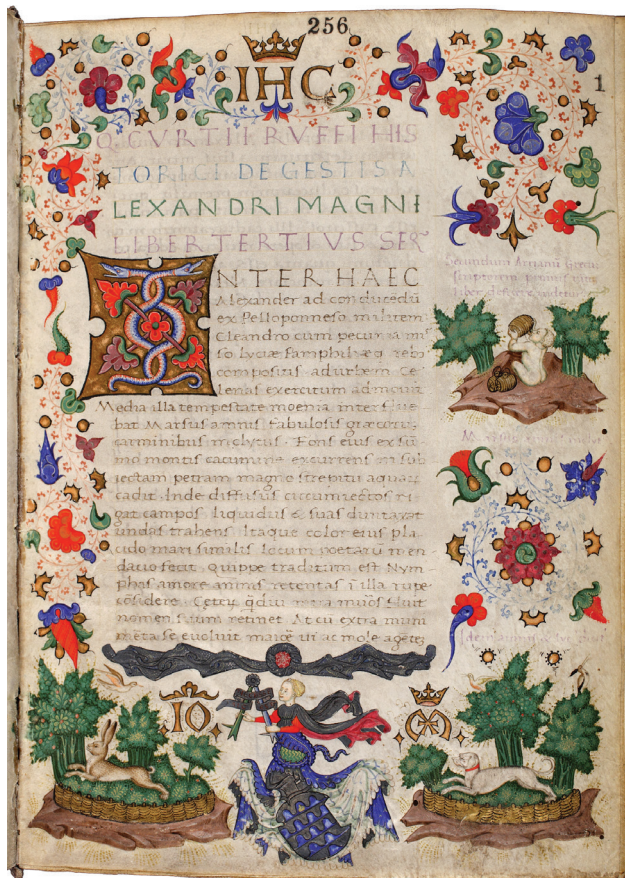 256
IHC
1
Q. CVRTII RVFFI HIS
TORICI DE GESTIS A
LEXANDRI MAGNI
LIBER TERTIVS SER
NTER HAEC
Alexander ad conducedū
ex Pelloponneso militem
Cleandro cum pecunia
composius ad urbem Ce
lenas exercitum admouit
Media illa tempestate moenia interflue
bat Marsus amnis fabulosis græcorū
carminibus inclytus. Fons eius ex sū
mo montis cacumine excurrens in sub
iectam petram magno strepitu aquarū
cadit. Inde diffusus circumiectos ri
gat campos liquidus & suas dumtaxat
undas trahens. Itaque color eius pla
cido mari similis locum poetarū men
dacio fecit. Quippe traditum est Nym
phas amore amnis retentas ī illa rupe
cōsidere. q̄diu intra muros fluit
nomen suum retinet. At cū extra
se euoluit ui ac mole agētes
IO